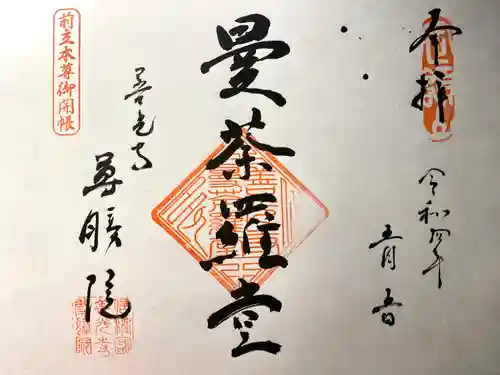 奉拝
令和四年
五月五日
曼荼羅堂
善光寺
尊勝院
前立本尊御開帳